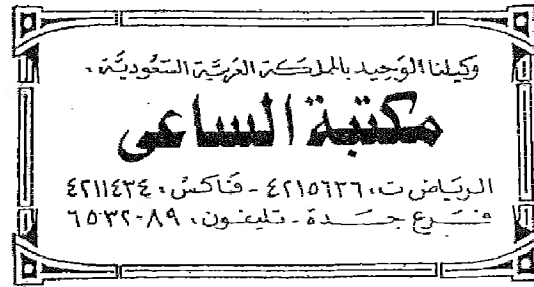 وكيلنا الوحيد بالمملكة العربية السعودية .
مكتبة الساعى
الرياض ت ، ٤٢١٥٦٢٦ - فاكس ، ٤٢١١٤٣٤
فرع جدة - تليفون ، ٦٥٣٢٠٨٩